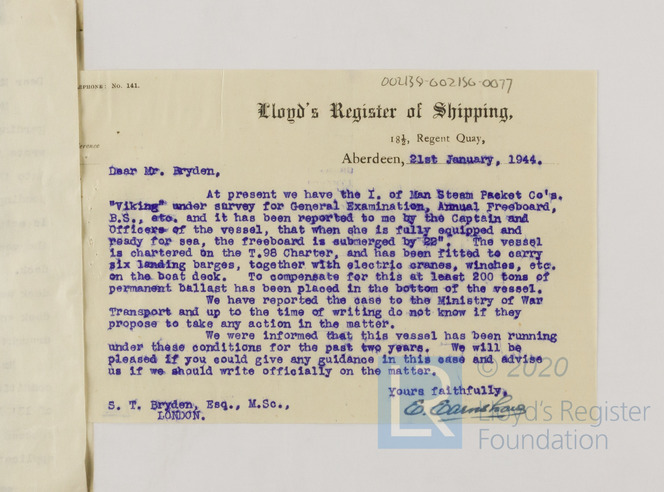 002139-002156-0077
No. 141.
Lloyd's Register of Shipping,
18½, Regent Quay,
Aberdeen, 21st January, 1944.
Dear Mr. Bryden,
At present we have the I. of Man Steam Packet Co's.
"Viking" under survey for General Examination, Annual Freeboard,
B.S., etc. and it has been reported to me by the Captain and
Officers of the vessel, that when she is fully equipped and
ready for sea, the freeboard is submerged by 22". The vessel
is chartered on the T.98 Charter, and has been fitted to carry
six landing barges, together with electric cranes, winches, etc.
on the boat deck. To compensate for this at least 200 tons of
permanent ballast has been placed in the bottom of the vessel.
We have reported the case to the Ministry of War
Transport and up to the time of writing do not know if they
propose to take any action in the matter.
We were informed that this vessel has been running
under these conditions for the past two years. We will be
pleased if you could give any guidance in this case and advise
us if we should write officially on the matter.
Yours faithfully,
E. Earnshaw
S. T. Bryden, Esq., M.Sc.,
LONDON.
© 2020
LR Lloyd's Register
Foundation